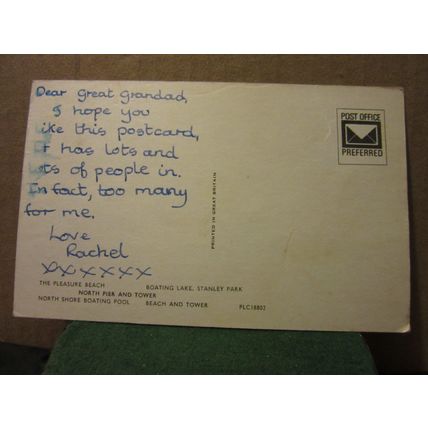 Dear Great Grandad,
I hope you
like this postcard,
it has lots and
lots of people in.
In fact, too many
for me.
Love
Rachel
xxxxxx
POST OFFICE
PREFERRED
PRINTED IN GREAT BRITAIN
THE PLEASURE BEACH BOATING LAKE, STANLEY PARK
NORTH PIER AND TOWER
NORTH SHORE BOATING POOL BEACH AND TOWER PLC18802